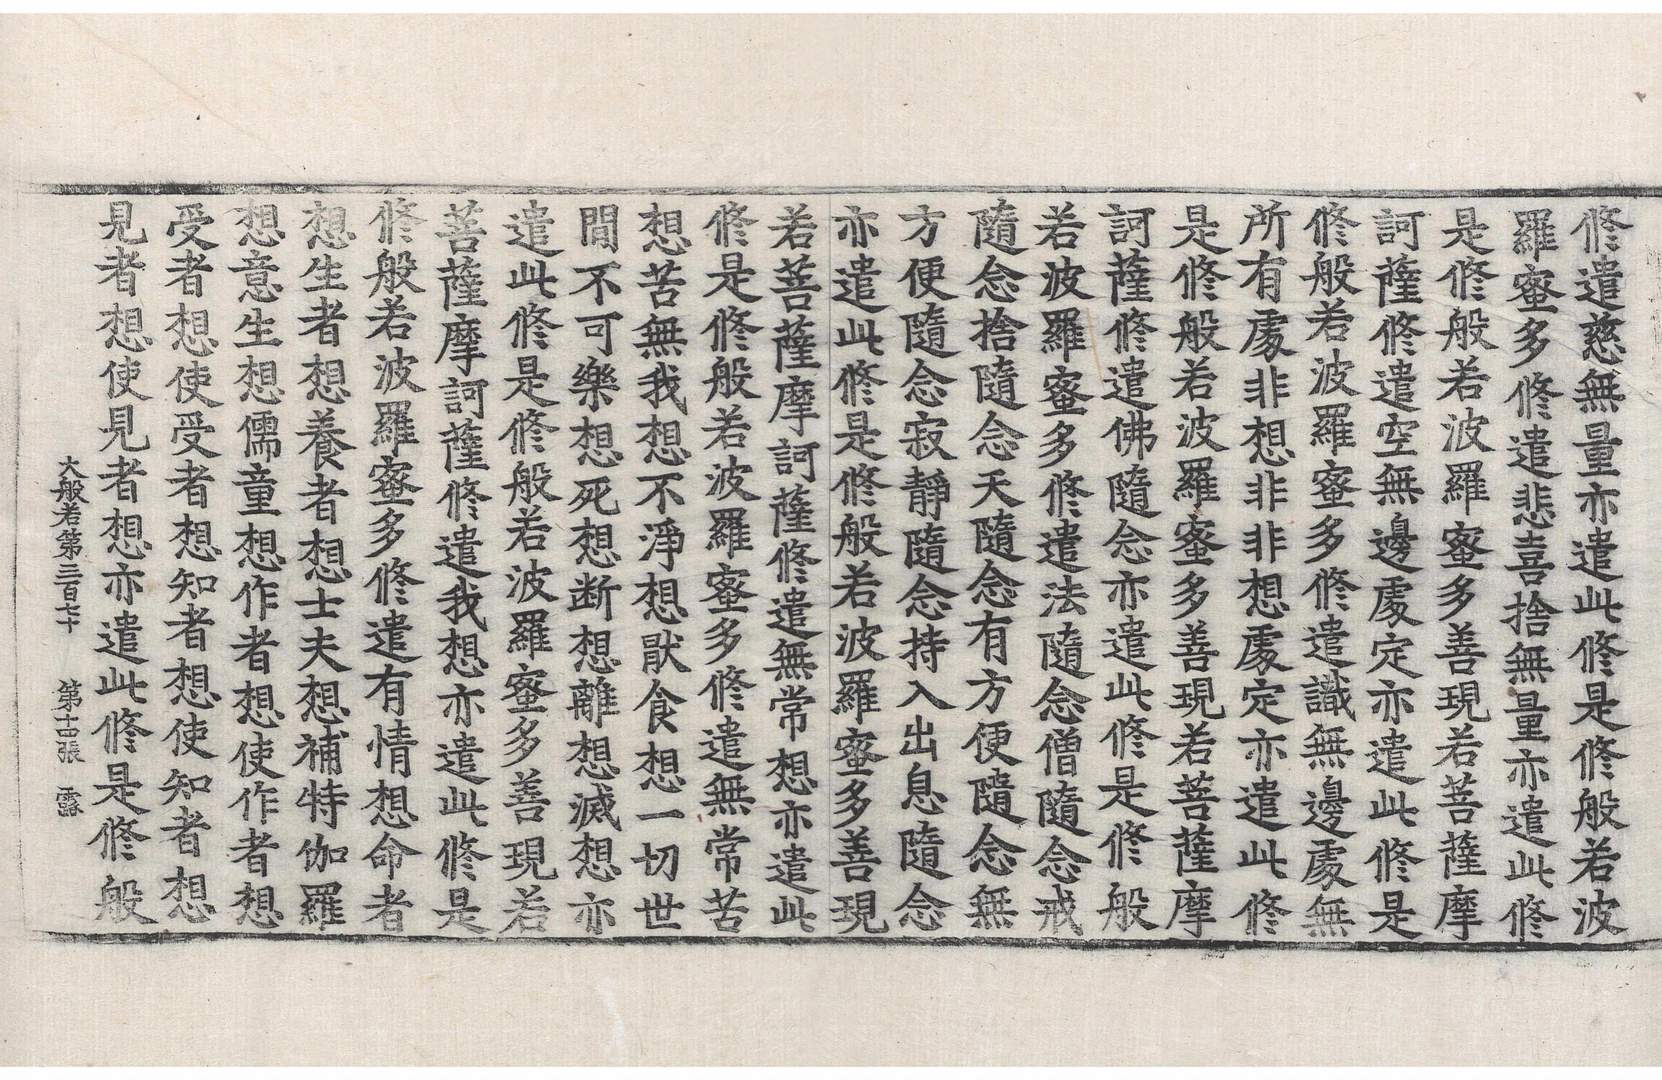 修遣慈無量亦遣此修是修般若波
羅蜜多修遣悲喜捨無量亦遣此修
是修般若波羅蜜多善現若菩薩摩
訶薩修遣空無邊處定亦遣此修是
修般若波羅蜜多修遣識無邊處無
所有處非想非非想處定亦遣此修
是修般若波羅蜜多善現若菩薩摩
訶薩修遣佛隨念亦遣此修是修般
若波羅蜜多修遣法隨念僧隨念戒
隨念捨隨念天隨念有方便隨念無
方便隨念寂靜隨念持入出息隨念
亦遣此修是修般若波羅蜜多善現
若菩薩摩訶薩修遣無常想亦遣此
修是修般若波羅蜜多修遣無常苦
想苦無我想不淨想厭食想一切世
間不可樂想死想断想離想滅想亦
遣此修是修般若波羅蜜多善現若
菩薩摩訶薩修遣我想亦遣此修是
修般若波羅蜜多修遣有情想命者
想生者想養者想士夫想補特伽羅
想意生想儒童想作者想使作者想
受者想使受者想知者想使知者想
見者想使見者想亦遣此修是修般
大般若第三百七十 第十五張 露